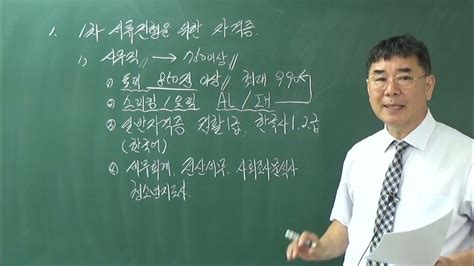 1. 1차 서류전형을 위한 자격증.
1) 사무직 → 기본이상
① 토익 850점 이상 최대 990
② 스피킹/오픽 AL/IH
③ 일반자격증 컴활1급, 한국사1.2급
(한국어)
④ 세무회계, 전산세무, 사회조사분석사
청소년지도사.